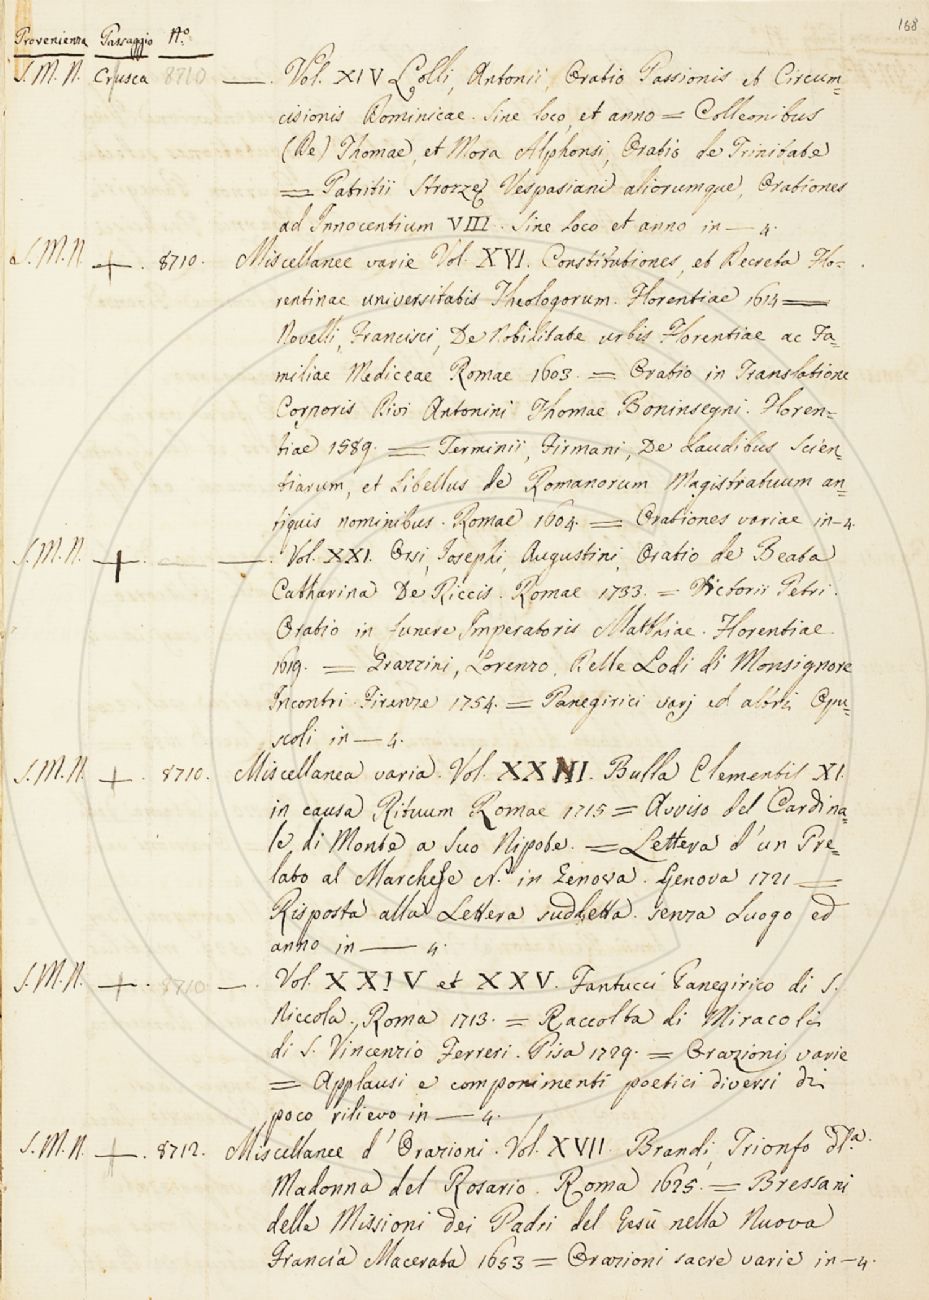 168
Provenienza Passaggio N.º
S. M. N. Crusca 8710 — . Vol. XIV Lolli, Antonii, Oratio Passionis et Circum=
cisionis Dominicae. Sine loco, et anno = Colleonibus
(De) Thomae, et Mora Alphonsi, Oratio de Trinitate
= Patritii Strozzę Vespasiani aliorumque, Orationes
ad Innocentium VIII. Sine loco et anno in — 4.
S. M. N. + . 8710. Miscellanee varie Vol. XVI. Constitutiones, et Decreta Flo=
rentinae universitatis Theologorum. Florentiae 1614 =
Novelli, Francisci, De Nobilitate urbis Florentiae ac Fa=
miliae Mediceae Romae 1603. = Oratio in Translatione
Corporis Divi Antonini Thomae Boninsegni. Floren=
tiae 1589. = Terminii, Firmani, De Laudibus Scien=
tiarum, et Libellus de Romanorum Magistratuum an=
tiquis nominibus. Romae 1604. = Orationes variae in — 4.
S. M. N. + . — — . Vol. XXI. Orsi, Josephi, Augustini, Oratio de Beata
Catharina De Riccis. Romae 1733. = Victorii Petri.
Oratio in funere Imperatoris Matthiae. Florentiae
1619. = Grazzini, Lorenzo, Delle Lodi di Monsignore
Incontri Firenze 1754. = Panegirici varj ed altri Opu=
scoli in — 4.
S. M. N. + . 8710. Miscellanea varia. Vol. Bulla Clementis XI.
in causa Rituum Romae 1715 = Avviso del Cardina=
le di Monte a Suo Nipote. = Lettera d'un Pre=
lato al Marchese N.º in Genova. Genova 1721 =
Risposta alla Lettera suddetta. senza Luogo ed
anno in — 4.
S. M. N. + . 8710 — . Vol. XXIV et XXV. Fantucci Panegirico di S.
Niccola., Roma 1713. = Raccolta di Miracoli
di S. Vincenzio Ferreri. Pisa 1729. = Orazioni varie
= Applausi e componimenti poetici diversi di
poco rilievo in — 4.
S. M. N. + . 8712. Miscellanee d'Orazioni. Vol. XVII. Brandi, Trionfo d.ª
Madonna del Rosario. Roma 1625. = Bressani
delle Missioni dei Padri del Gesù nella Nuova
Francia Macerata 1653 = Orazioni sacre varie in — 4.